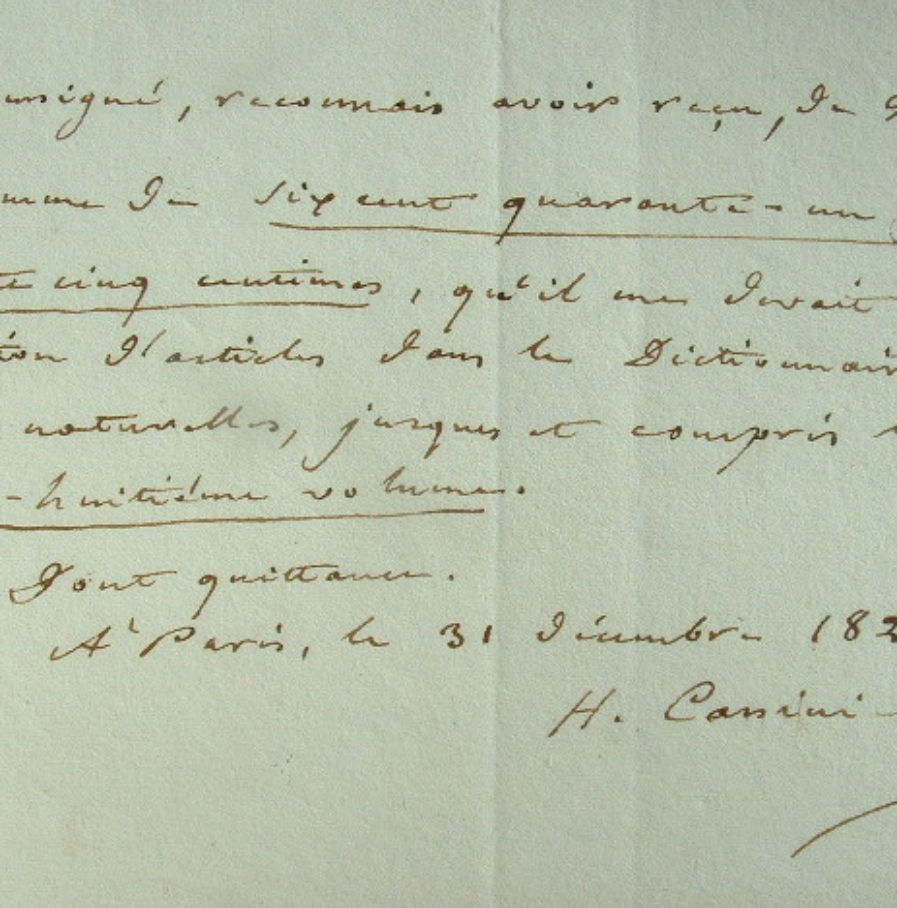 unsigné, reconnais avoir reçu, de
omme de six cent quarante-un
te cinq centimes, qu'il me devait
tion d'articles dans le Dictionnair
naturelles, jusques et compris
-huitiéme volume.
Dont quittance.
A Paris, le 31 décembre 182
H. Cassini